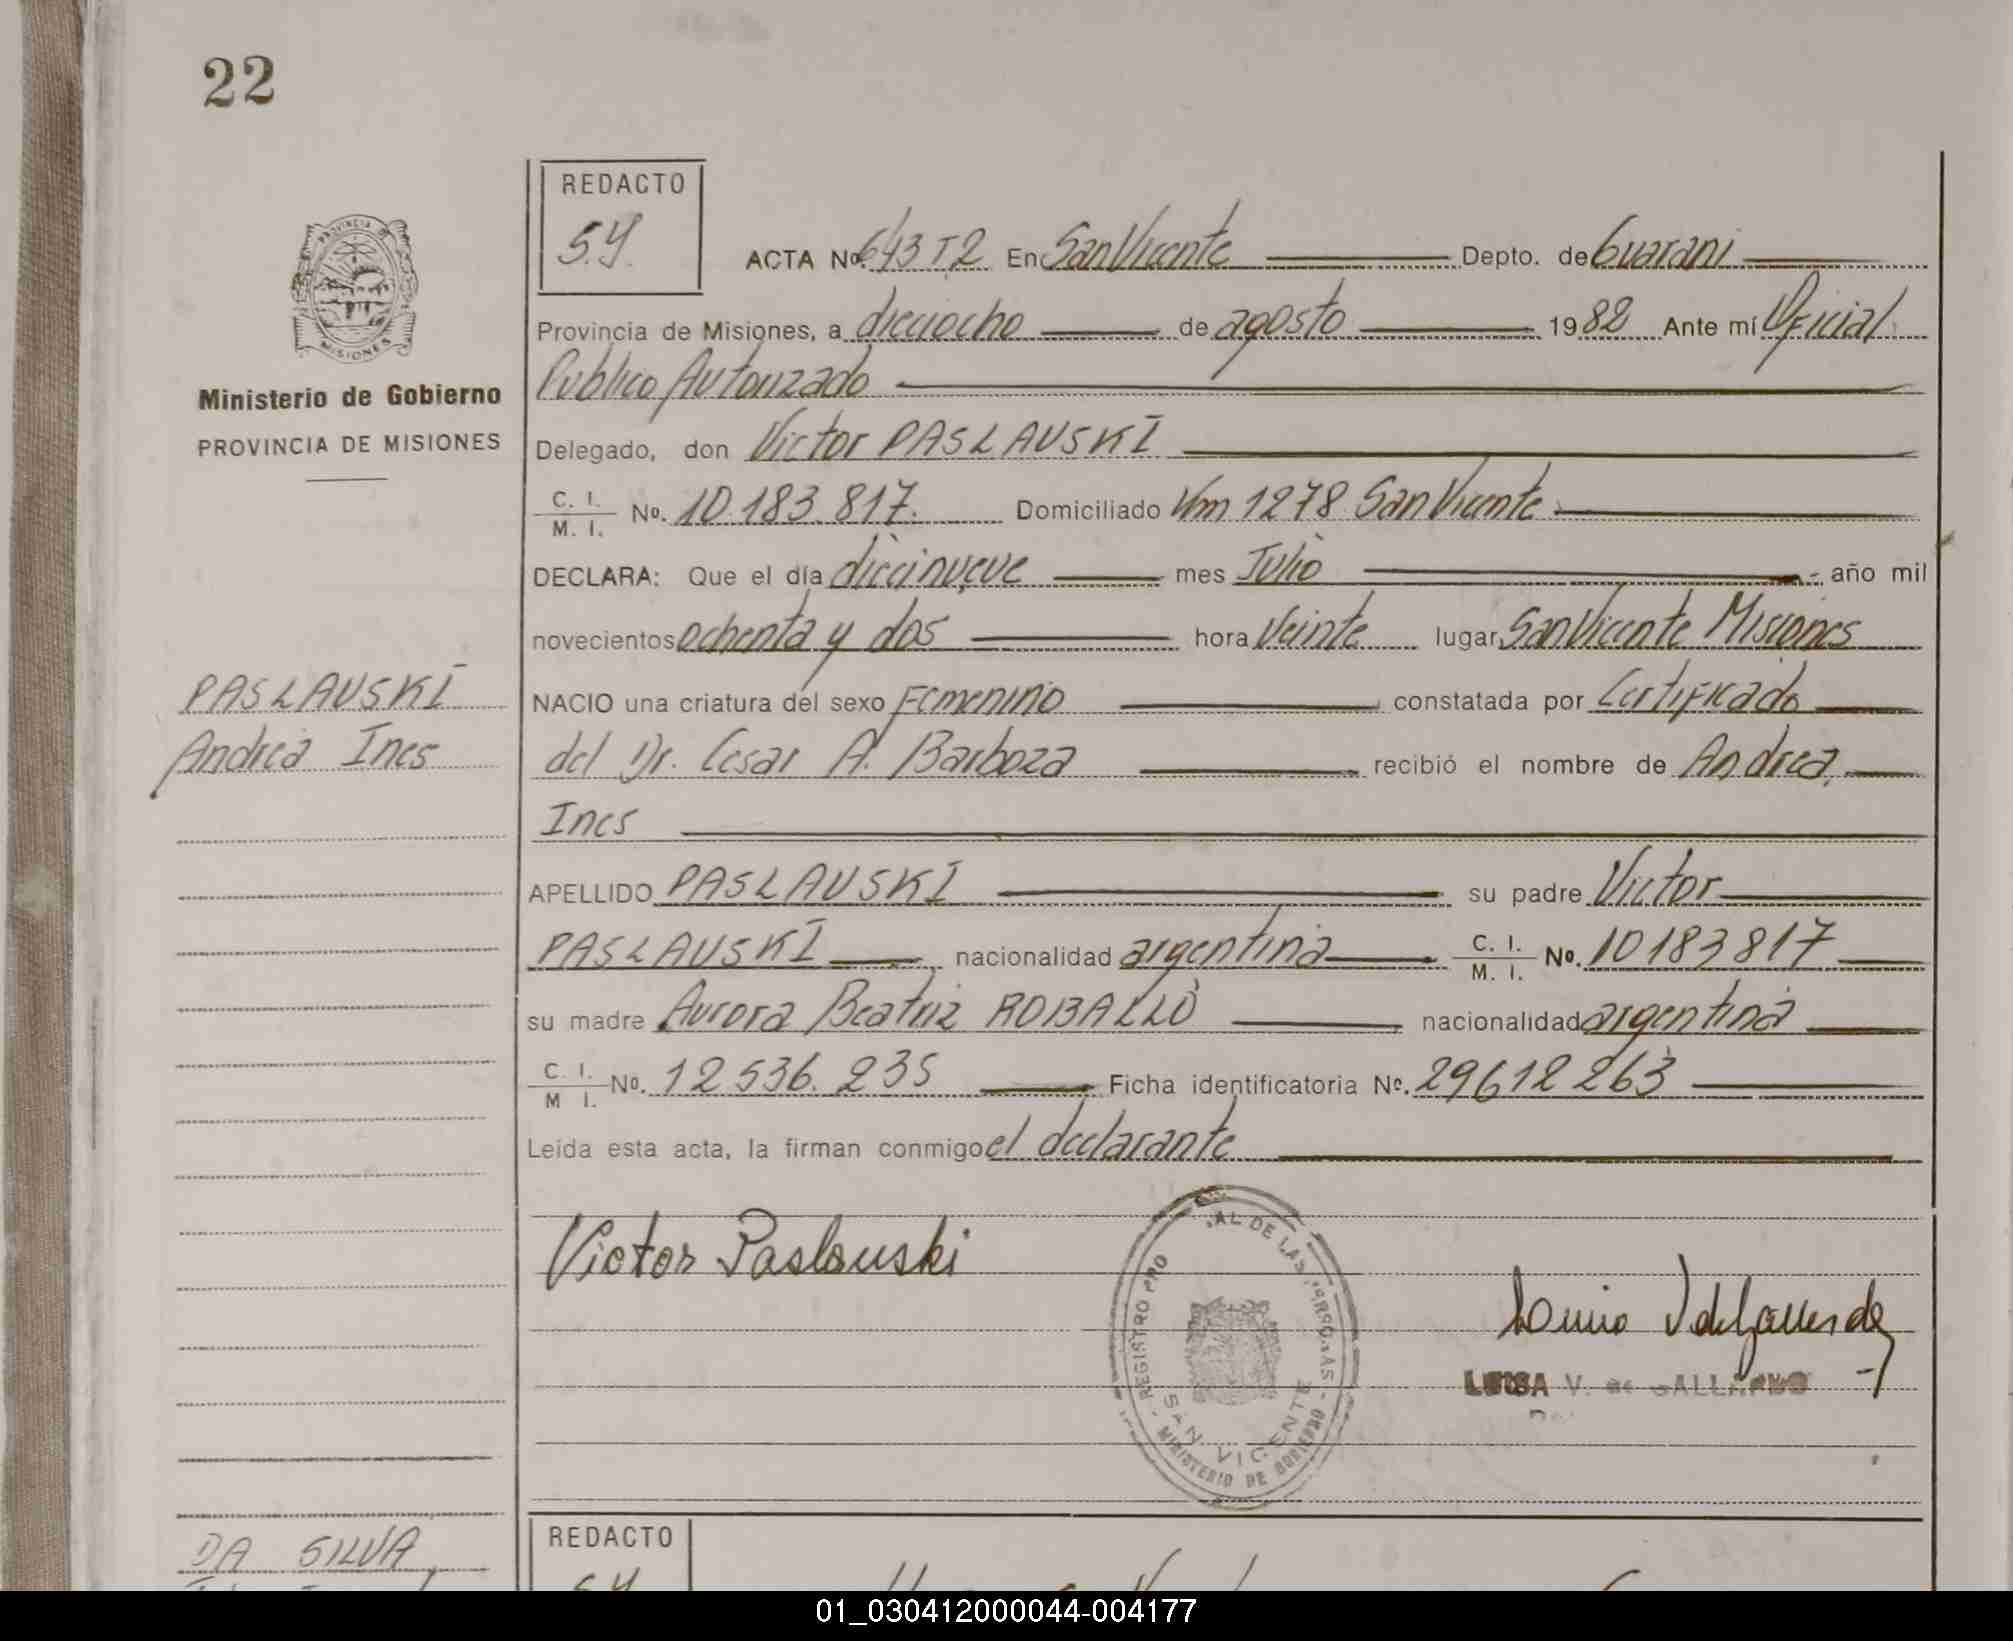 22
REDACTO
S.Y.
ACTA Nº. 643 T2 En San Vicente Depto. de Guarani
PROVINCIA DE
MISIONES
Provincia de Misiones, a dieciocho de agosto 1982 Ante mí Oficial
Publico Autorizado
Ministerio de Gobierno
PROVINCIA DE MISIONES
Delegado, don Victor PASLAUSKI
C. I.
M. I. No. 10.183.817. Domiciliado Km 1278 San Vicente
DECLARA: Que el día diecinueve mes Julio año mil
novecientos ochenta y dos hora Veinte lugar San Vicente Misiones
PASLAUSKI
Andrea Ines
NACIO una criatura del sexo Femenino constatada por Certificado
del Dr. Cesar A. Barboza recibió el nombre de Andrea
Ines
APELLIDO PASLAUSKI su padre Victor
PASLAUSKI nacionalidad argentina C. I.
M. I. No. 10183817
su madre Aurora Beatriz ROBALLO nacionalidad argentina
C. I.
M I. No. 12.536.235 Ficha identificatoria Nº. 29612263
Leída esta acta, la firman conmigo el declarante
Victor Paslauski
REGISTRO PRO AL DE LAS
SAN VICENTE
MINISTERIO DE GOBIERNO
LUISA V. de GALLARDO
DA SILVA
REDACTO
01_030412000044-004177